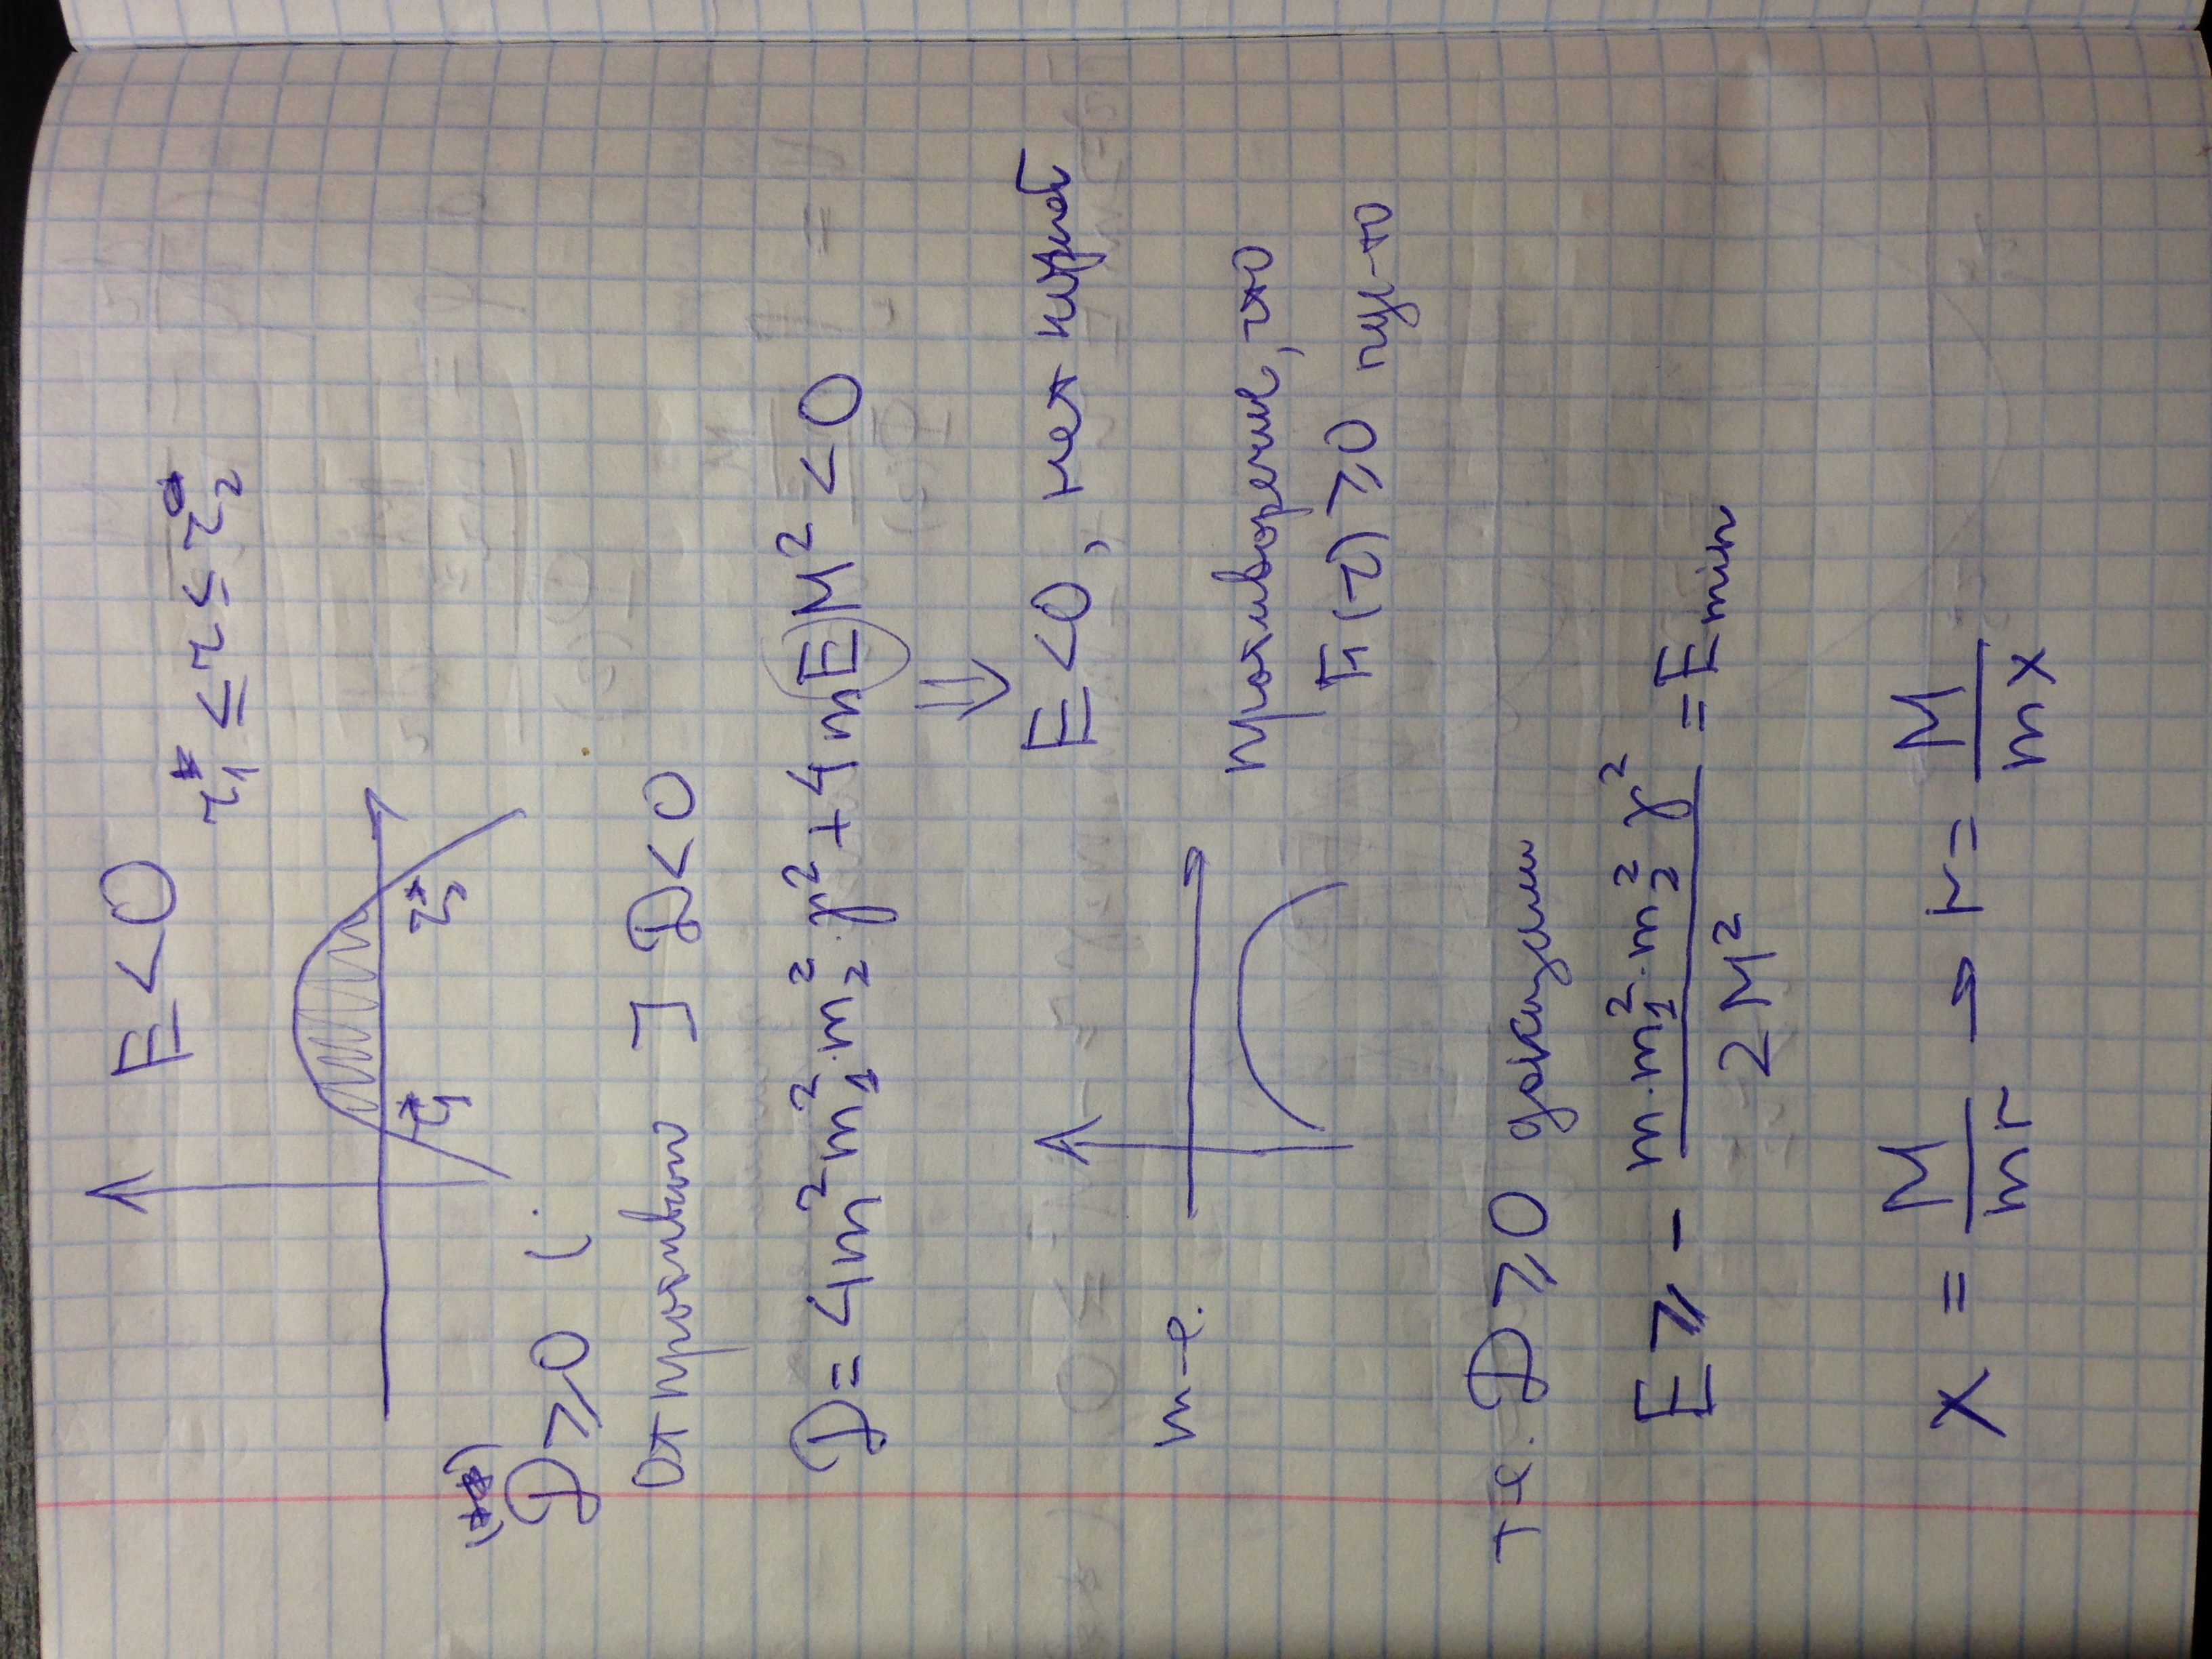 E < 0
r₁* ≤ r ≤ r₂*
r₁* r₂*
(**)
D ≥ 0 (.
От противного ] D < 0
D = 4m²m₁²·m₂²·γ² + 4mEM² < 0
⇓
E < 0, нет корней
т-е.
противоречие, что
F₁(r) ≥ 0
т-е. D ≥ 0 доказали
E ≥ - \frac{m·m₁²·m₂²γ²}{2M²} = E min
x = \frac{M}{mr} → r = \frac{M}{mx}